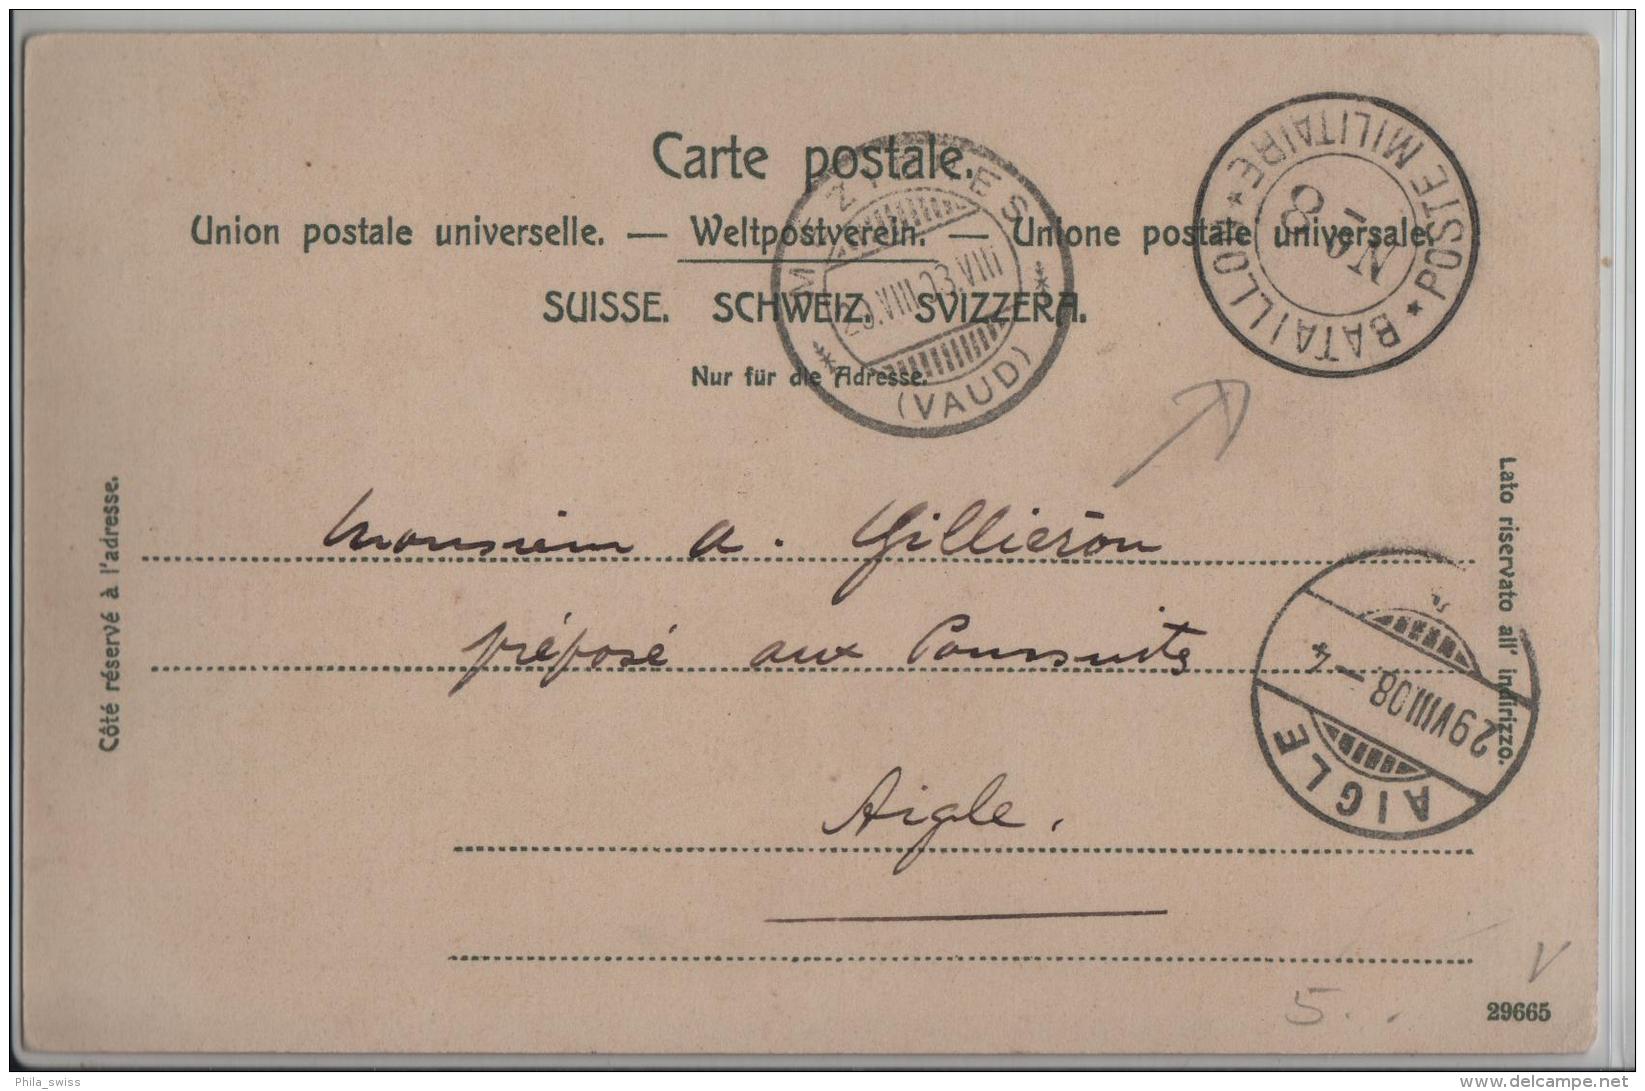 Carte postale.
Union postale universelle. — Weltpostverein. — Unione postale universale.
SUISSE. SCHWEIZ. SVIZZERA.
Nur für die Adresse.
MÉZIÈRES
(VAUD)
★ POSTE MILITAIRE ★
BATAILLON
No 8
Côté réservé à l'adresse.
Lato riservato all' indirizzo.
Monsieur A. Gilliéron
préposé aux Poursuites
Aigle.
AIGLE
29 VIII 08 - 4
5..
V
29665
Phila_swiss
delcampe.net